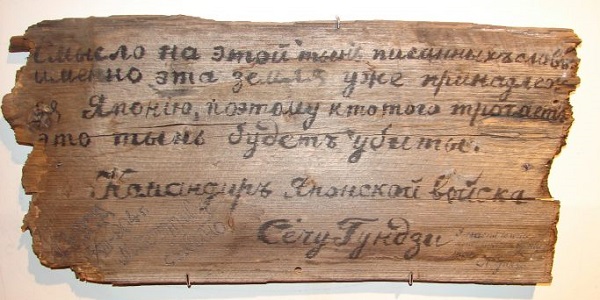 Смысло на этой тынь писанныхъ словъ
именно эта земля уже принадлеж
Японию, поэтому ктотого трогаетъ
это тынь будетъ убиты.
Командиръ Японской войска
Сечу Гундзи